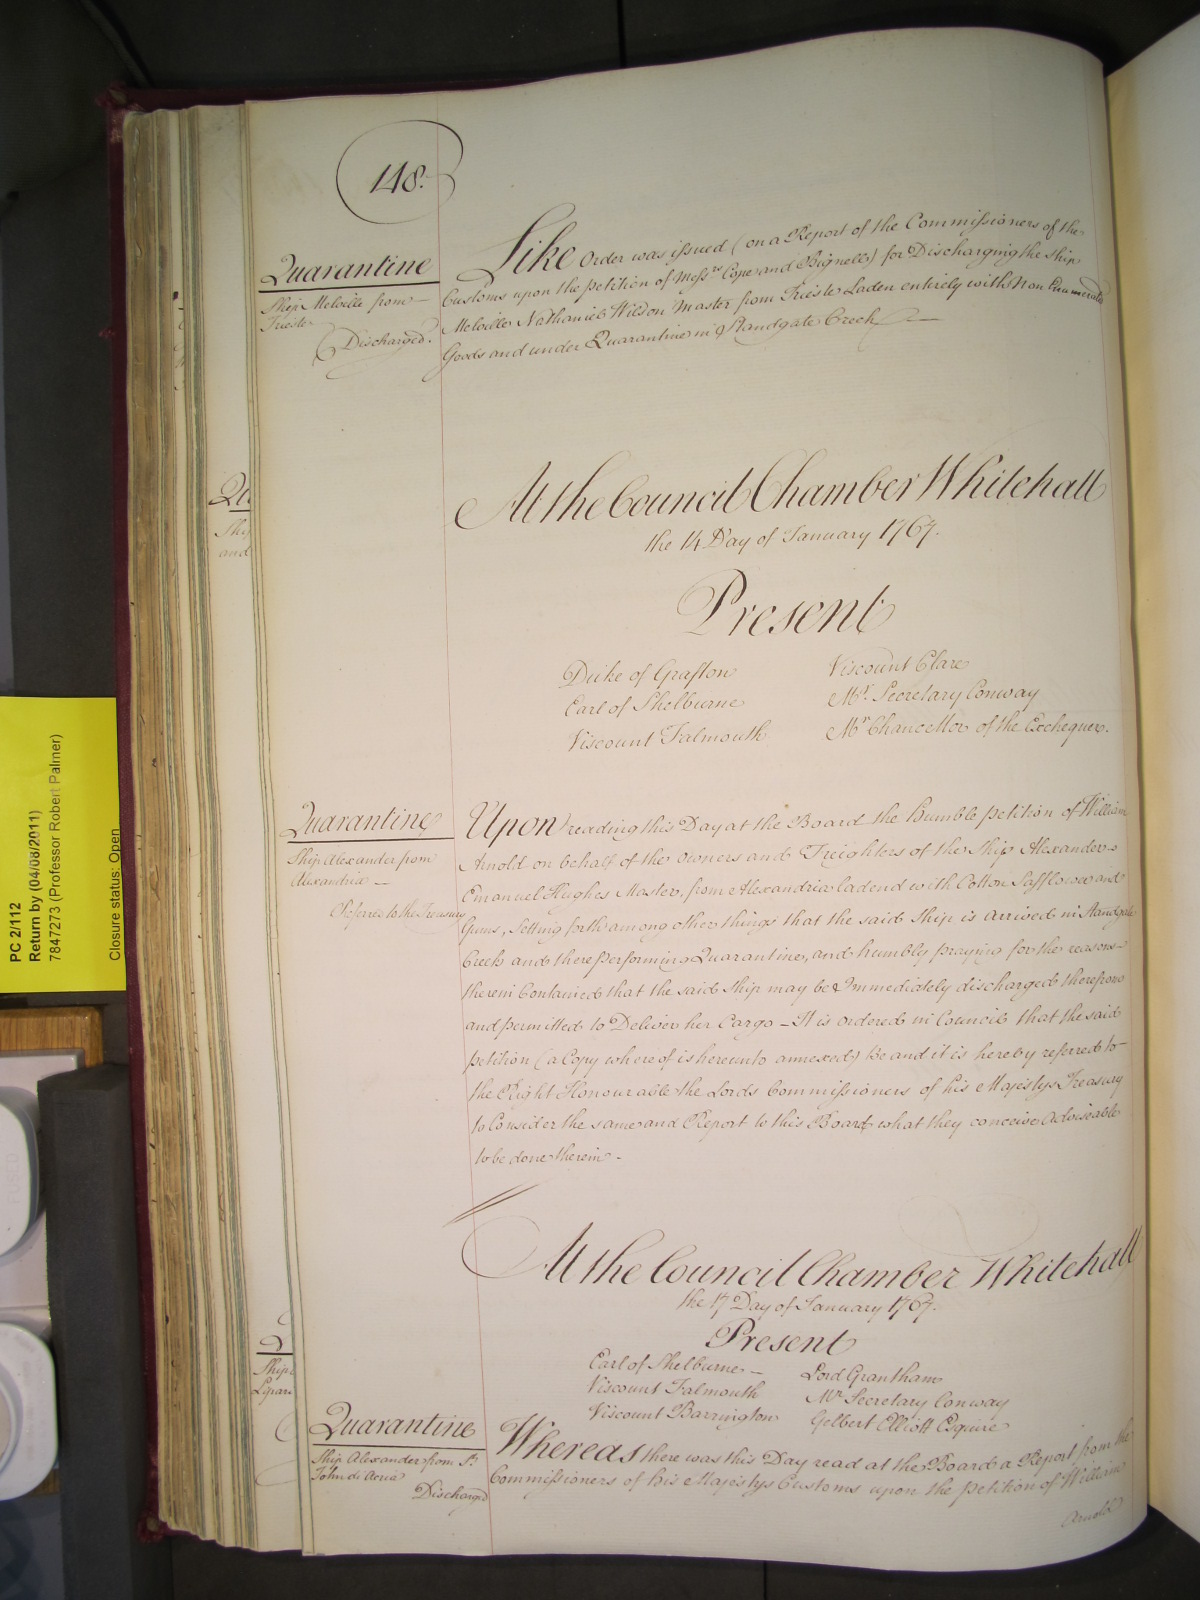 148.
Quarantine
Ship Melville from
Trieste
Discharged.
Like Order was issued (on a Report of the Commissioners of the
Customs upon the petition of Mess.rs Cope and Bignell) for Discharging the ship
Melville Nathaniel Wilson Master from Trieste Laden entirely with Non Enumerated
Goods and under Quarantine in Standgate Creek
At the Council Chamber Whitehall
the 14 Day of January 1767.
Present
Duke of Grafton
Viscount Clare
Earl of Shelburne
Mr. Secretary Conway
Viscount Falmouth
Mr Chancellor of the Exchequer.
Quarantine
Ship Alexander from
Alexandria —
Referred to the Treasury
Upon reading this Day at the Board the humble petition of William
Arnold on behalf of the Owners and Freighters of the Ship Alexander
Emanuel Hughes Master, from Alexandria ladend with Cotton Safflower and
Gums, Setting forth among other things that the said Ship is arrived in Standgate
Creek and there performing Quarantine, and humbly praying for the reasons
therein Contained that the said Ship may be Immediately discharged therefrom
and permitted to Deliver her Cargo — It is ordered in Council that the said
petition (a Copy whereof is hereunto annexed) Be and it is hereby referred to
the Right Honourable the Lords Commissioners of his Majestys Treasury
to Consider the same and Report to this Board what they conceive adviseable
to be done therein -
At the Council Chamber Whitehall
the 17 Day of January 1767.
Present
Earl of Shelburne —
Lord Grantham
Viscount Falmouth
Mr Secretary Conway
Viscount Barrington
Gelbert Elliott Esquire
Quarantine
Ship Alexander from St.
John di Acria
Discharged
Whereas there was this Day read at the Board a Report from the
Commissioners of his Majestys Customs upon the petition of William
Arnold
Qu
Ship
and
Ship
PC 2/112
Return by (04/08/2011)
7847273 (Professor Robert Palmer)
Closure status: Open